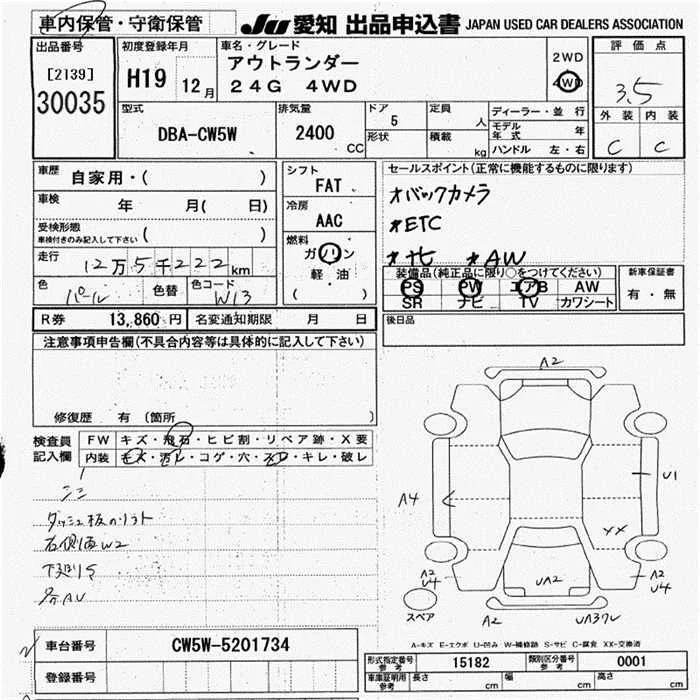 車内保管・守衛保管
JU 愛知 出品申込書 JAPAN USED CAR DEALERS ASSOCIATION
出品番号
[2139]
30035
初度登録年月
H19 12月
車名・グレード
アウトランダー
24G 4WD
2WD
4WD
評価点
3.5
外装 内装
C C
型式
DBA-CW5W
排気量
2400 CC
ドア
5
形状
定員
人
積載
kg
ディーラー・並行
モデル年式 年
ハンドル 左・右
車歴
自家用・( )
車検
年 月( 日)
受検形態
車検付きのみ記入して下さい ( )
走行
12万5千222km
色
パール
色替
色コード
W13
シフト
FAT
冷房
AAC
燃料
ガソリン
軽・油
( )
セールスポイント(正常に機能するものに限ります)
*バックカメラ
*ETC
*ナビ *AW
装備品(純正品に限り○をつけてください)
PS PW エアB AW
SR ナビ TV カワシート
新車保証書
有・無
R券 13,860円 名変通知期限 月 日
後日品
注意事項申告欄(不具合内容等は具体的に記入して下さい)
修復歴 有(箇所 )
検査員記入欄
FW キズ・飛石・ヒビ割・リペア跡・X要
内装 キズ・汚レ・コゲ・穴・スレ・キレ・破レ
右側面W2
下廻りS
各AU
A2
A4
U1
XX
A2
U4
UA2
A2
U4
スペア
A2
A-キズ E-エクボ U-凹み W-補修跡 S-サビ C-腐食 XX-交換済
車台番号 CW5W-5201734
登録番号
形式指定番号 参考 15182
類別区分番号 参考 0001
車庫証明用 参考 長さ cm 幅 cm 高さ cm